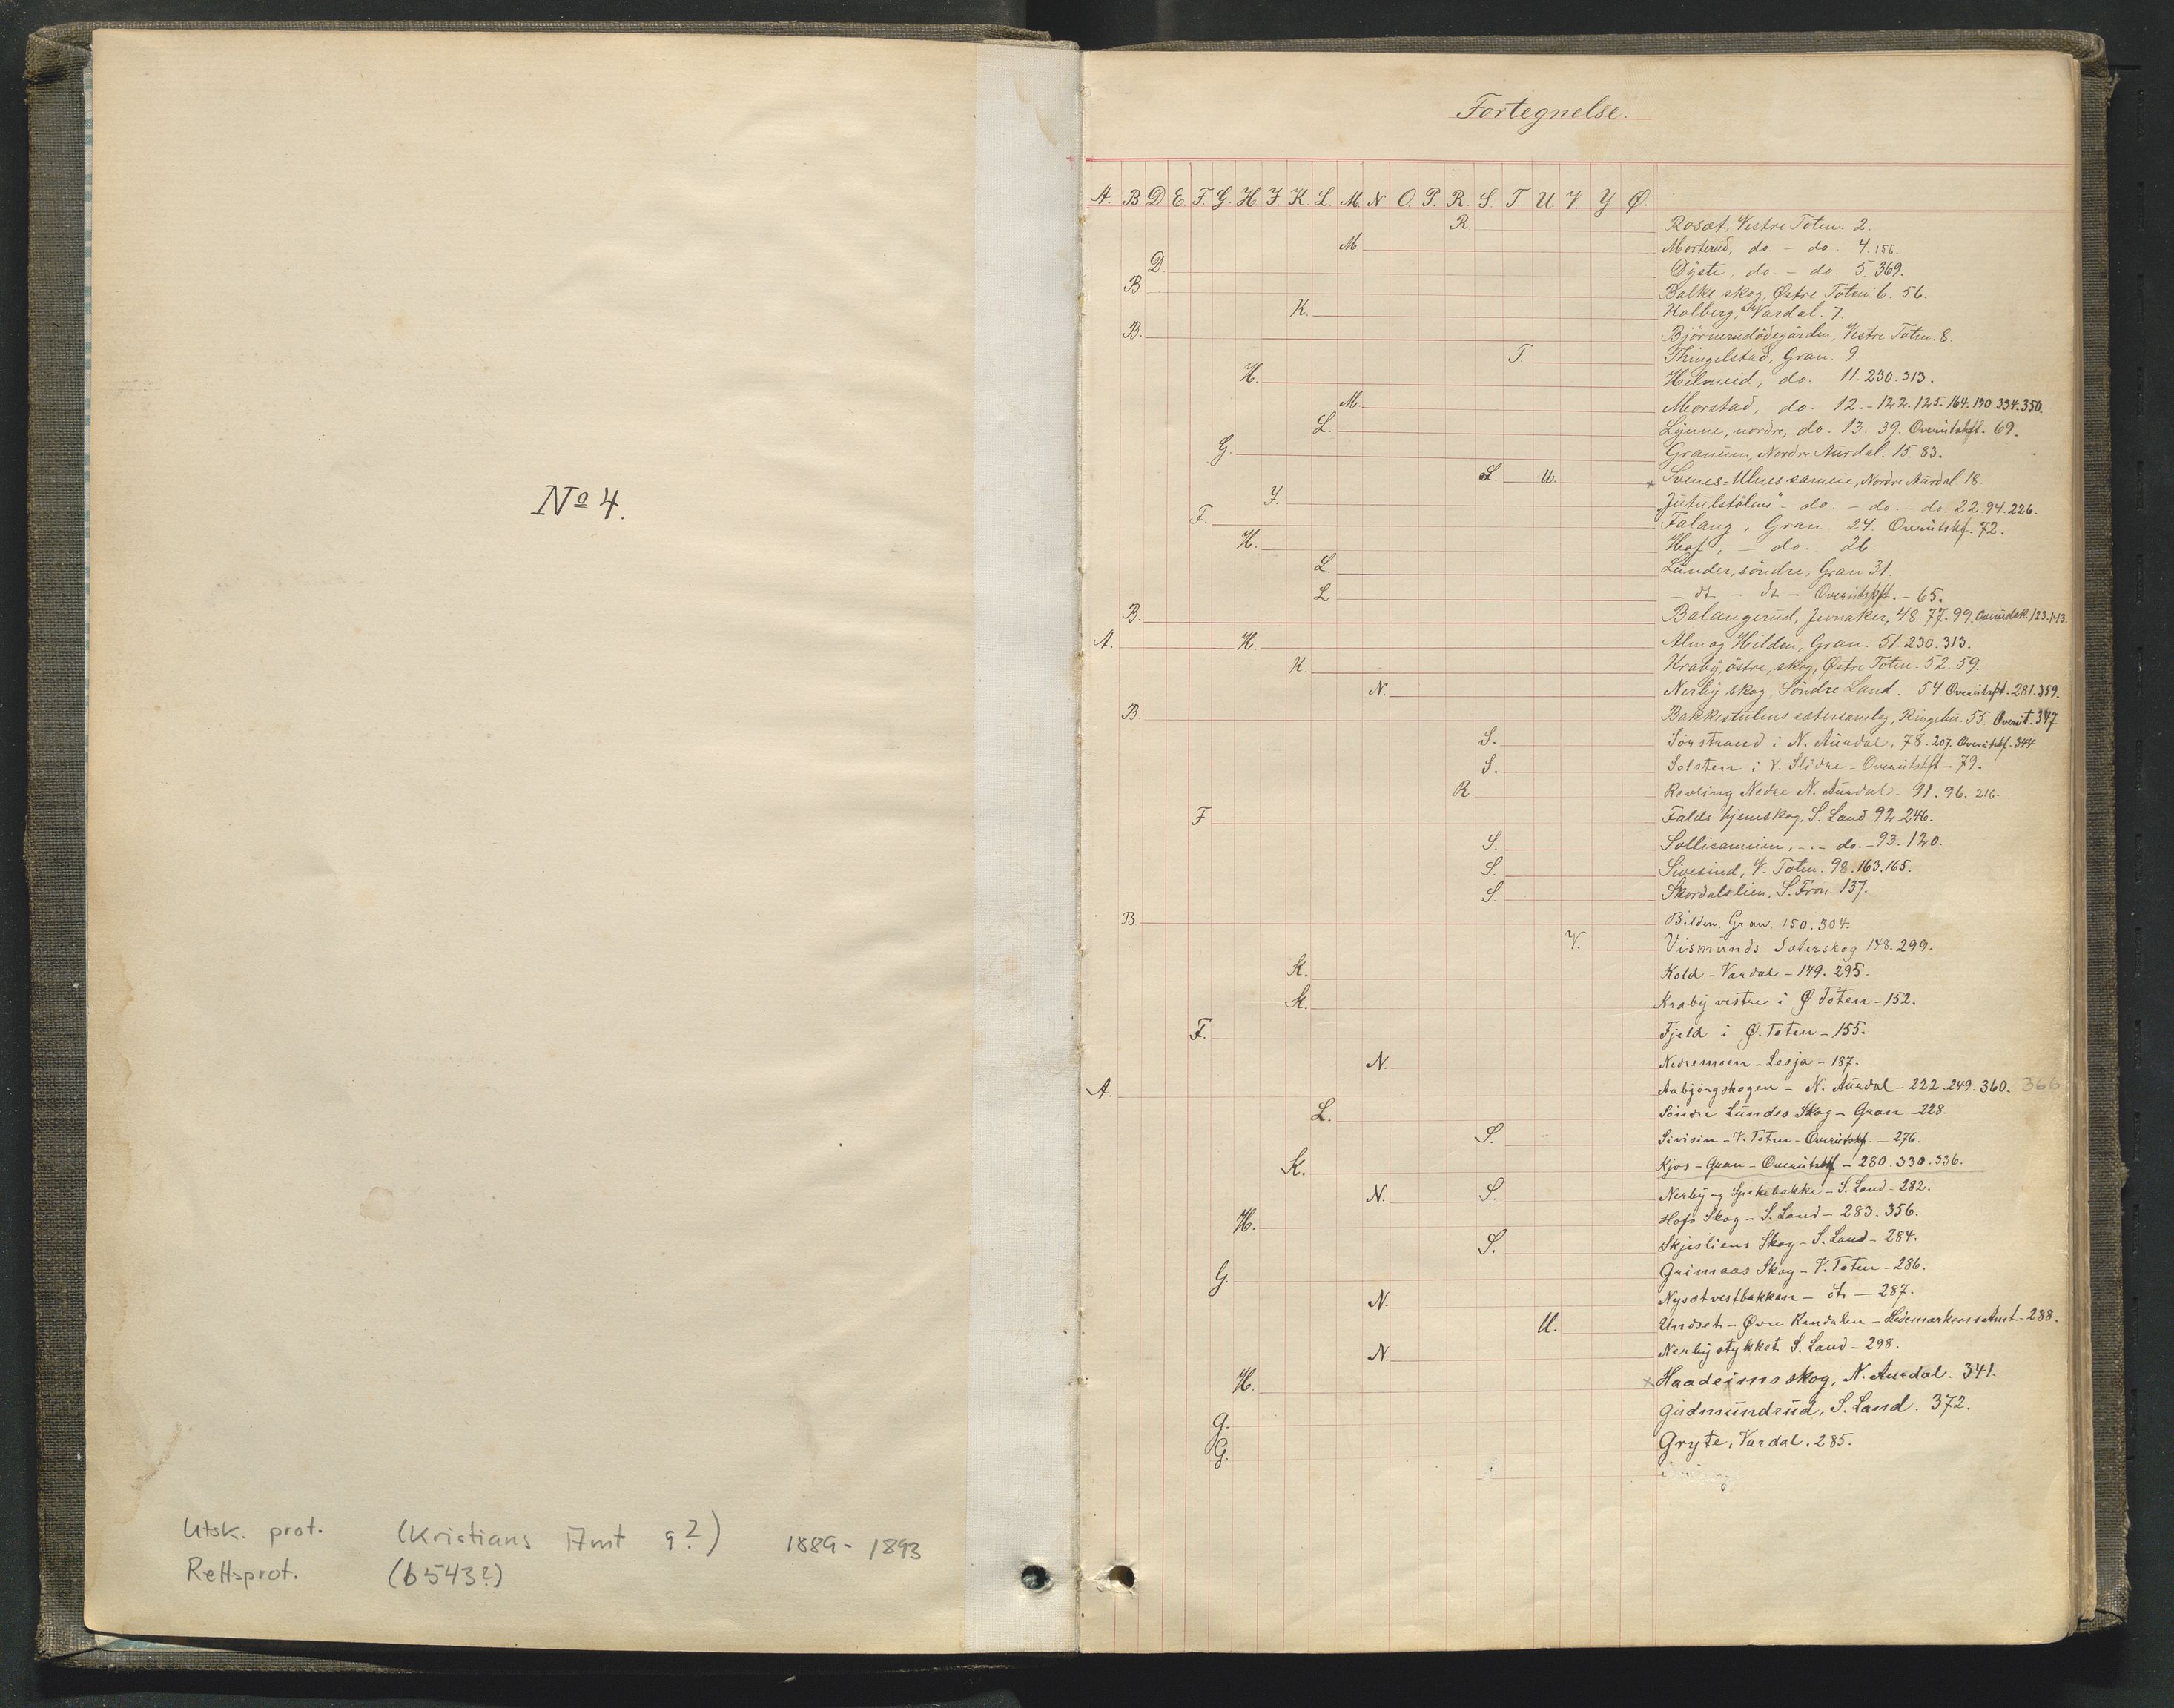 No 4.
Utsk. prot. (Kristians Amt 9?) 1889-1893
Rettsprot. (b543?)
Fortegnelse.
A. B. D. E. F. G. H. J. K. L. M. N. O. P. R. S. T. U. V. Y Ø.
R Rosæt, Vestre Toten. 2.
M. Morterud, do. - do. 4. 156.
D. Dyste, do. - do. 5. 369.
B. Balke skog, Østre Toten. 6. 56.
K. Kolberg, Vardal. 7.
B. Björnerudödegården, Vestre Toten. 8.
T. Thingelstad, Gran. 9.
H. do. 11. 230. 313.
M. Morstad, do. 12. - 122. 125. 164. 190. 334. 350.
L. Lynne, nordre, do. 13. 39. Overutskft. 69.
G. Granum, Nordre Aurdal. 15. 83.
S. U. Svenes-Ulnes sameie, Nordre Aurdal. 18.
J. "Jutulstölens" - do. - do. - do. 22. 94. 226.
F. Falang, Gran. 24. Overutskf. 72.
H. Hof, - do. 26.
L. Lunder, söndre, Gran 31.
L - dt - dt - Overutskft. - 65.
B. Balangerud, Jevnaker, 48. 77. 99. 123. 143.
A. H. Alm og Hilden, Gran. 51. 230. 313.
K. Kraby, östre, skog, Østre Toten. 52. 59.
N. Nerby skog, Söndre Land. 54 Overutskft. 281. 359.
B. Bakkestulens sætersameie, Ringebu. 55. Overut. 347
S. Sörstrand i N. Aurdal, 78. 207. Overutskf. 344.
S. Solsten i V. Slidre - Overutskft - 79.
R. Revling Nedre N. Aurdal - 91. 96. 216.
F Falds hjemskog. S. Land 92. 246.
S. Sollisameien, - . - do. - 93. 120.
S. Sivesind, V. Toten. 98. 163. 165.
S. Skordalslien, S. Fron. 137.
B Bilden, Gran. 150. 304.
V. Vismunds Sæterskog 148. 299.
K. Kold - Vardal - 149. 295.
K. Kraby vestre i Ø Toten - 152.
F. Fjeld i Ø. Toten - 155.
N. Nedremoen - Lesja - 187.
A. Aabjörgskogen - N. Aurdal - 222. 249. 360. 366
L. Söndre Lundes Skog - Gran - 228.
S. Sivisin - V. Toten - Overutskf. - 276.
K. Kjos - Gran - Overutskf - 280. 330. 336.
N. S. Nerby og Spikebakke - S. Land - 282.
H. Hofs Skog - S. Land - 283. 356.
S. Skjesliens Skog - S. Land - 284.
G. Grimaas Skog - V. Toten - 286.
N. Nysetvestbakken - dt - 287.
U. Undset - Øvre Rendalen - Hedemarkens Amt - 288.
N. Nerbystykket S. Land - 298.
H. Haadeims skog, N. Aurdal. 341.
G. Gudmundrud, S. Land. 372.
G. Gryte, Vardal. 285.